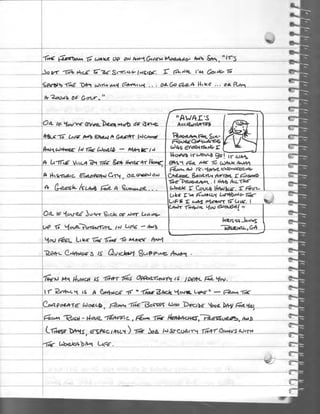 The Freedom to wake up on any given morning and say, "It's
just too nice to be sitting inside. I think I'm going to
spend the day with my family ... or go for a hike ... or play
a round of golf."
Or if you've ever dreamed of being
able to live and earn a great income
anywhere in the world - maybe in
a little villa by the sea
a historic European city, or even on
a Greek island for a summer...
Or if you're just sick of not living
up to your potential in life - and
you feel like the time to make any
real change is quickly slipping away.
"AWAI'S
Accelerated
Program for Six-
Figure Copywriting
was everything I
hoped it would be! It was
easy for me to walk away
from my
career.
the program. I had all the
work I could handle. I feel
like I'm finally living the
life I was meant to live. I
can't thank you enough!"
GA
Then my hunch is that this opportunity is ideal for you.
It really is a chance to "take back your life" - from the
corporate world, from the bosses who decide your day for you,
from rush-hour traffic, from the headaches, pressures, and
(these days, especially) the job insecurity that comes with
the workaday life.